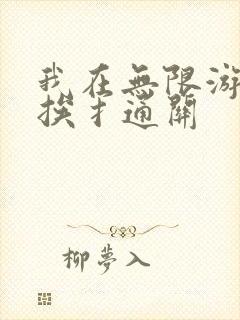 我在無限游
挨扌通關
柳夢入